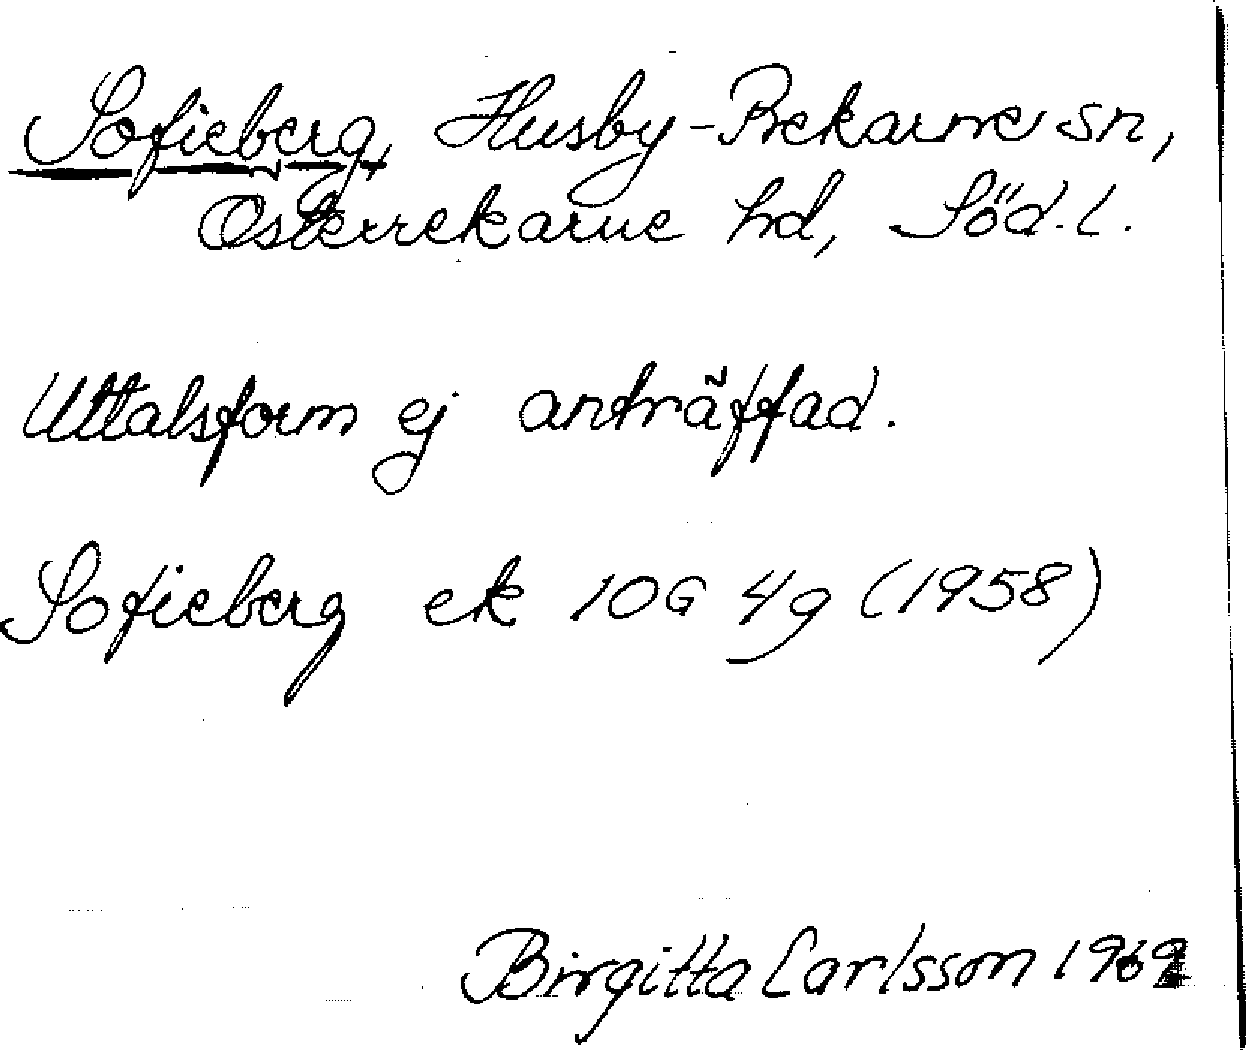 Sofieberg, Husby-Rekarne sn,
Österrekarne hd, Söd.l.
Uttalsform ej anträffad.
Sofieberg ek 10G 4g (1958)
Birgitta Carlsson 1969